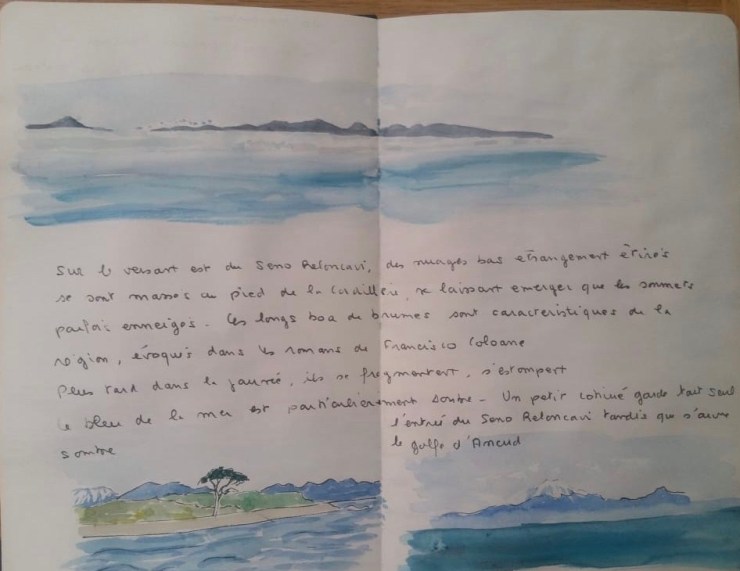 Sur le versant est du Seno Reloncavi, des nuages bas étrangement étirés
se sont massés au pied de la Cordillère, ne laissant émerger que les sommets
parfois enneigés. Ces longs boa de brumes sont caractéristiques de la
région, évoqués dans les romans de Francisco Coloane
Plus tard dans la journée, ils se fragmentent, s'estompent
Le bleu de la mer est particulièrement sombre - Un petit coihué garde tout seul
l'entrée du Seno Reloncavi tandis que s'ouvre
sombre le golfe d'Ancud